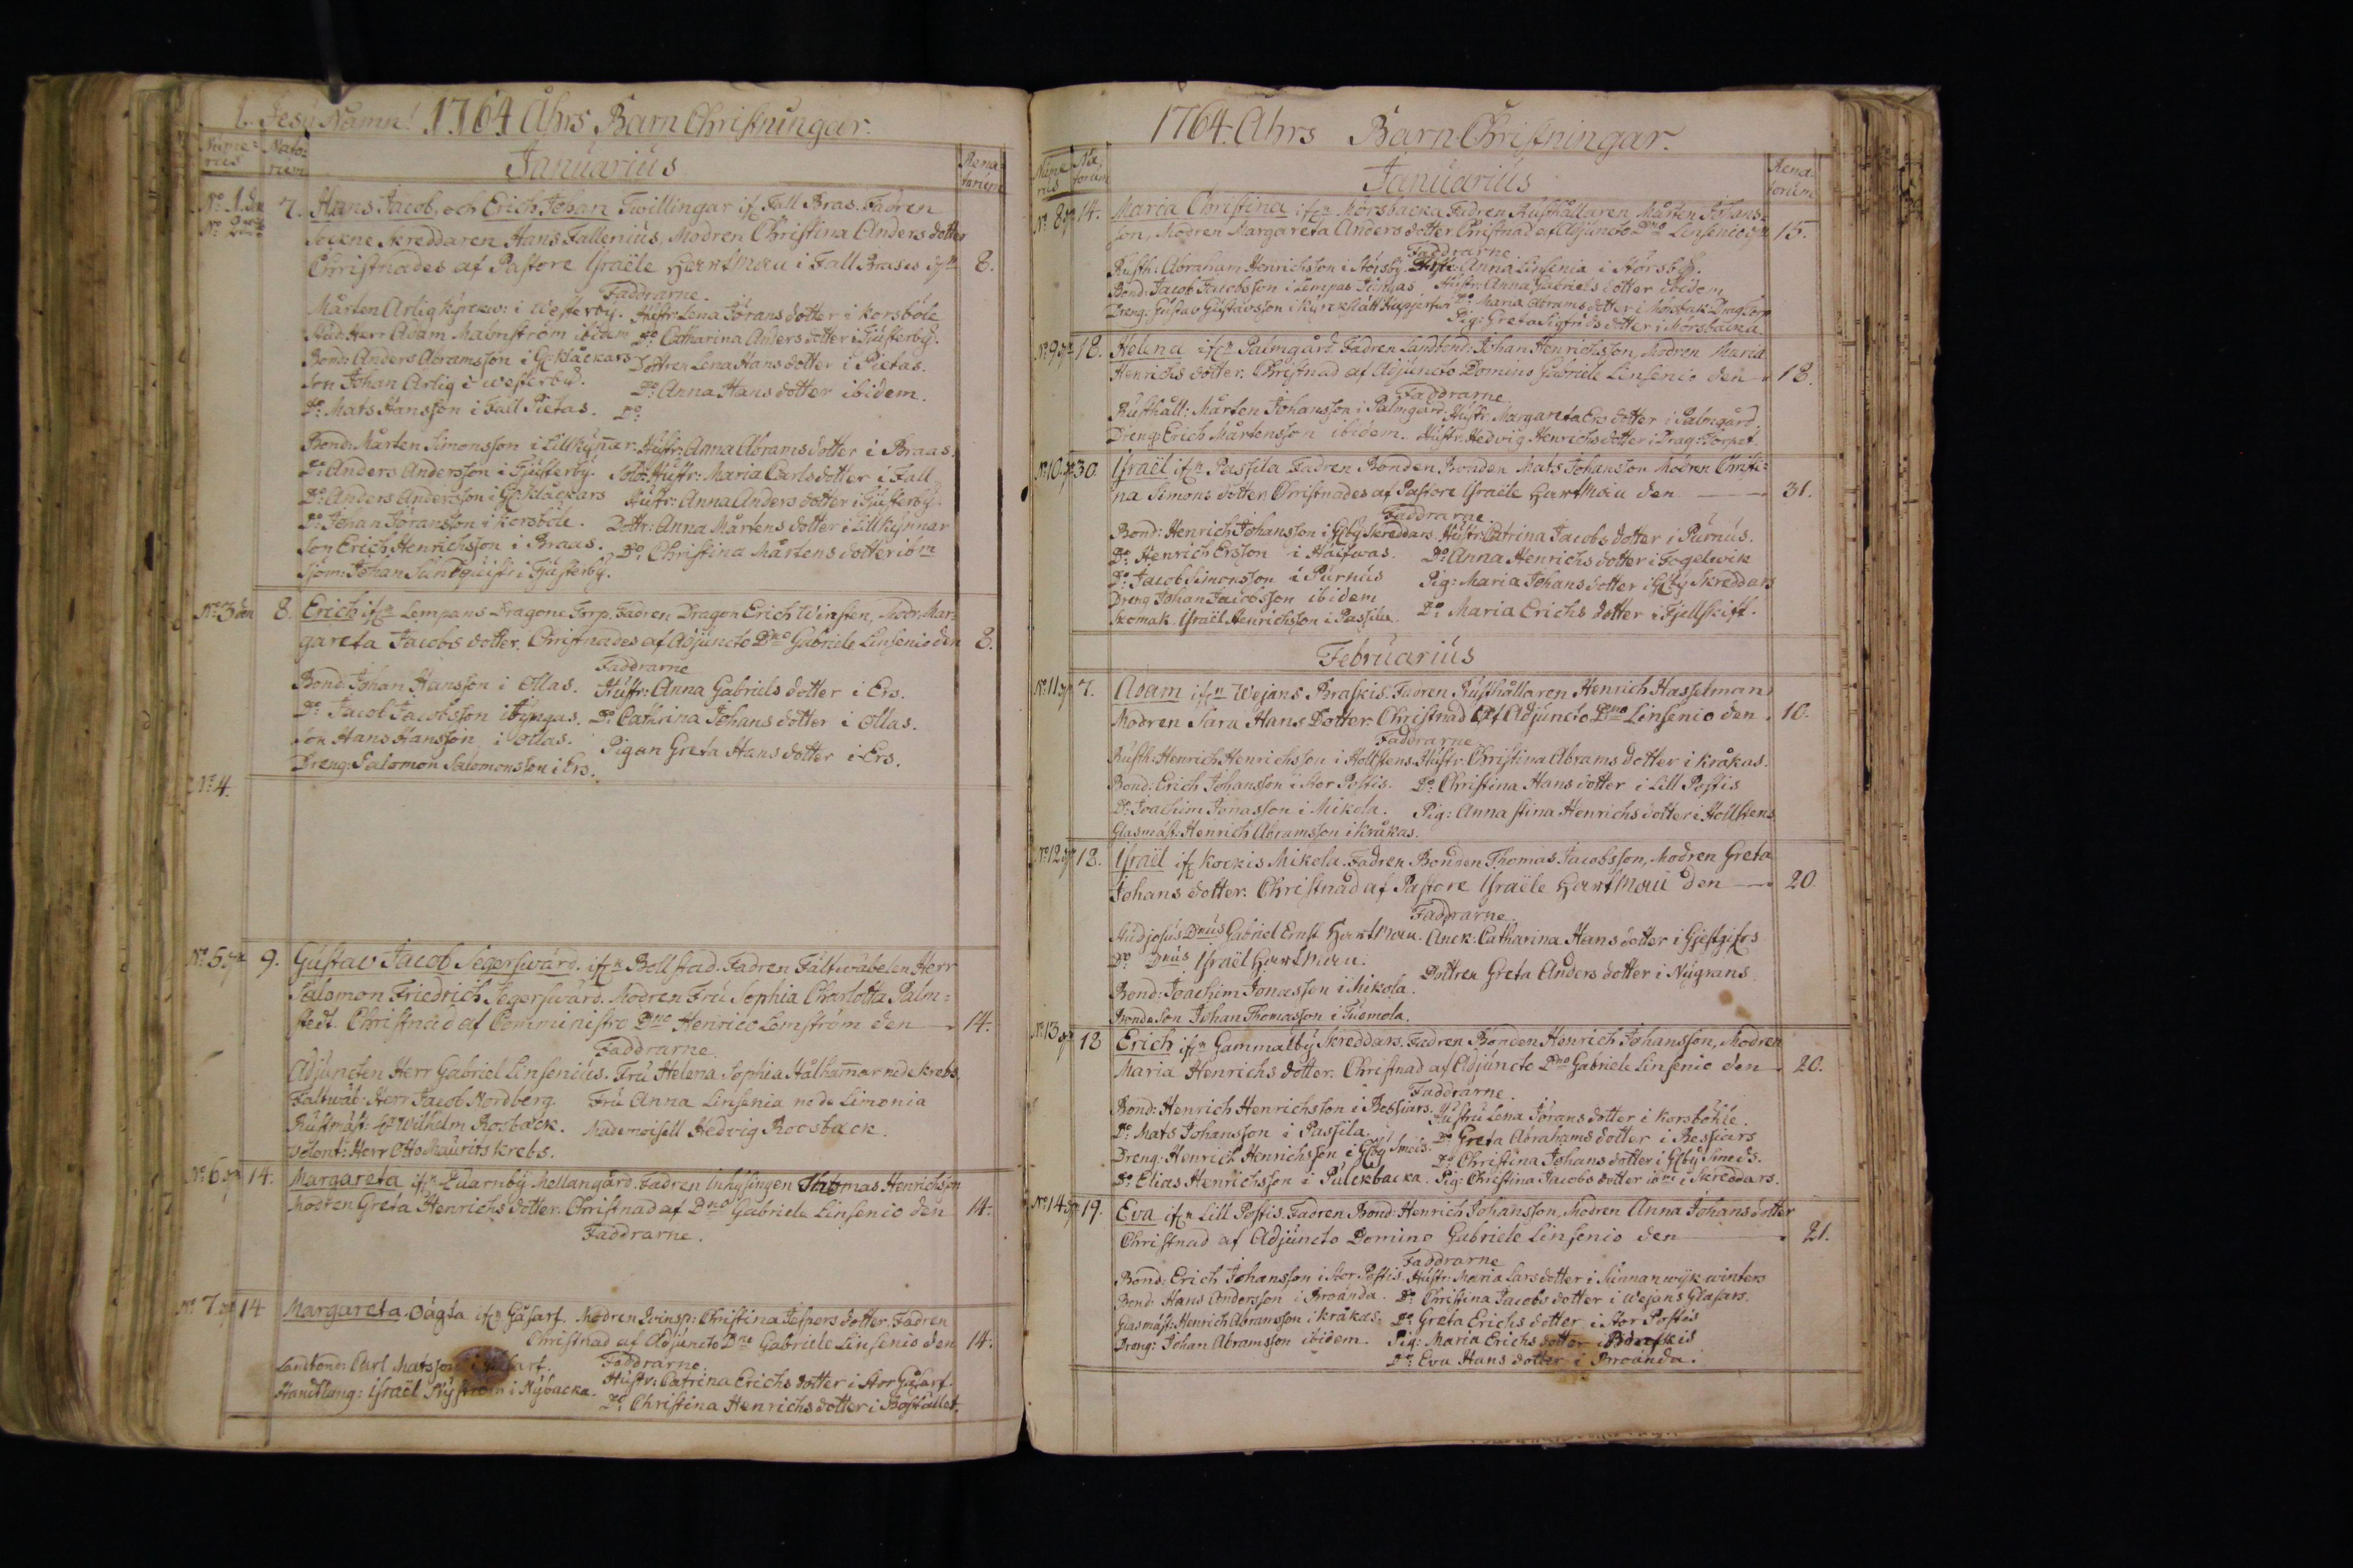 I. Jesu Namn! 1764 Åhrs Barn Christningar.
Nume=rus Nato=rum Januarius Rena=torum
No 1. den 7. Hans Jacob, och Erich Johan Twillingar if. Fall Bras. Fadren
No 2
Sockne Skreddaren Hans Fallenius, Modren Christina Anders dotter
Christnades af Pastore Israële Hartman i Fall Brases d. 8.
Faddrarne.
Mårten Arlig i Westerby. Hustr: Lena Jörans dotter i Korsböle
Herr Adam Malmström ibidem Do Catharina Anders dotter i Gjusterby.
Bond: Anders Abramsson i G: Klåckars Dottren Lena Hans dotter i Pietas.
Son Johan Arlig i Westerby. Do Anna Hans dotter ibidem.
Do Mats Hansson i Fall Pietas. Do
Bond: Mårten Simonsson i Lillkynnar. Hustr: Anna Abrams dotter i Braas.
Do Anders Andersson i Gjusterby. Hustr: Maria Carls dotter i Fall
Do Anders Andersson i G: Klåckars Hustr: Anna Anders dotter i Gjusterby.
Do Johan Jöransson i Korsböle. Dottr: Anna Mårtens dotter i Lillkynnar
Son Erich Henrichsson i Braas. Do Christina Mårtens dotter ibm
Sjöm: Johan Sundquist i Gjusterby.
No 3 den 8. Erich ifn Lempans Dragone Torp. Fadren Dragon Erich Winsten, Modr: Mar=
gareta Jacobs dotter. Christnades af Adjuncto Dno Gabriele Linsenio den 8.
Faddrarne
Bond: Johan Hansson i Ollas. Hustr: Anna Gabriels dotter i Ers.
Do Jacob Jacobsson i Tyngas. Do Cathrina Johans dotter i Ollas.
Son Hans Hansson i Ollas. Pigan Greta Hans dotter i Ers.
Dreng: Salomon Salomonsson i Ers.
No 4.
No 5. 9. Gustav Jacob Segerswärd. ifn Bollstad. Fadren Fältwäbelen Herr
Salomon Friedrich Segerswärd. Modren Fru Sophia Charlotta Palm=
stedt. Christnad af Comministro Dno Henrico Lomström den 14.
Faddrarne.
Adjuncten Herr Gabriel Linsenius. Fru Helena Sophia Stålhammar nede Krebs
Faltwäb: Herr Jacob Nordberg. Fru Anna Linsenia neda Limonia
Rustmäst: Wilhelm Rosback. Mademoisell Hedvig Roosback.
Volont: Herr Otto Maurits Krebs.
No 6. 14. Margareta ifn Quarnby Mellangård. Fadren Inhysingen Thomas Henrichsson
Modren Greta Henrichs dotter. Christnad af Dno Gabriele Linsenio den 14.
Faddrarne.
No 7. 14 Margareta. Oägta ifn Gåsarf. Modren Qvinsp: Christina Jespers dotter. Fadren
Christnad af Adjuncto Dno Gabriele Linsenio den 14.
Landbond: Carl Matsson i Faddrarne.
Handtlang: Israël Nyström i Nybacka. Hustr: Catrina Erichs dotter i Stor Gåsarf.
Do Christina Henrichs dotter i Bostället.
1764. Åhrs Barn-Christningar.
Nume rus Na torum Januarius Rena torum
No 8 14. Maria Christina ifn Mörsbacka Fadren Rusthållaren Mårten Johans=
son, Modren Margareta Anders dotter. Christnad af Adjuncto Dno Linsenio 15.
Faddrarne
Rusth: Abraham Henrichsson i Störsby. Anna Linsenia i Störsby.
Bond: Jacob Jacobsson i Lempas Tyngas Hustr: Anna Gabriels dotter ibidem
Dreng: Gustav Gustavsson i Kyrckslätt Do Maria Abrams dotter i Mörsbak: Drag Torp
Pig: Greta Sigfrids dotter i Mörsbacka
No 9 18. Helena ifn Palmgård. Fadren Landbond: Johan Henrichsson, Modren Maria
Henrichs dotter. Christnad af Adjuncto Domino Gabriele Linsenio den 18.
Faddrarne.
Rusthåll: Mårten Johansson i Palmgård. Hustr: Margareta Ers dotter i Palmgård.
Dreng: Erich Mårtensson ibidem. Hustr: Hedvig Henrichs dotter i Drag: Torpet.
No 10 30. Israël ifn Passila Fadren Bonden Bonden Mats Johansson Modren Christi=
na Simons dotter. Christnades af Pastore Israële Hartman den 31.
Faddrarne
Bond: Henrich Johansson i G:by Skreddars. Hustr: Catrina Jacobs dotter i Purnus.
Do Henrich Ersson i Haifwas. Do Anna Henrichs dotter i Fogelwik
Do Jacob Simonsson i Purnus Pig: Maria Johans dotter i G:by Skreddars
Dreng Johan Jacobsson ibidem Do Maria Erichs dotter i Fjellskift.
Skomak. Israël Henrichsson i Passila
Februarius
No 11 7. Adam ifn Wejans Braskis. Fadren Rusthållaren Henrich Hasselman
Modren Sara Hans Dotter. Christnad Af Adjuncto Dno Linsenio den 10.
Faddrarne
Rusth: Henrich Henrichsson i Hollstens. Hustr: Christina Abrams dotter i Kråkas.
Bond: Erich Johansson i Stor Postis. Do Christina Hans dotter i Lill Postis
Do Joachim Jonasson i Mikola. Pig: Anna Stina Henrichs dotter i Hollstens
Glasmäst: Henrich Abramsson i Kråkas.
No 12 18. Israël if Kockis Mikola. Fadren Bonden Thomas Jacobsson, Modren Greta
Johans dotter. Christnad af Pastore Israële Hartman den 20.
Faddrarne.
Studiosus Dnus Gabriel Ernst Hartman. Anck: Catharina Hans dotter i Gjestgifvs
Do Dnus Israël Hartman.
Dottren Greta Anders dotter i Nugrans
Bond: Joachim Jonasson i Mikola.
Bonda Son Johan Thomasson i Tuomola.
No 13 18 Erich ifn Gammalby Skreddars. Fadren Bonden Henrich Johansson, Modren
Maria Henrichs dotter. Christnad af Adjuncto Dno Gabriele Linsenio den 20.
Faddrarne.
Bond: Henrich Henrichsson i Bessiars. Hustru Lena Jörans dotter i Korsböhle.
Do Mats Johansson i Passila. Do Greta Abrahams dotter i Bessiars
Dreng: Henrich Henrichsson i G:by Smeds. Do Christina Johans dotter i G:by Smeds.
Do Elias Henrichsson i Pulckbacka. Pig: Christina Jacobs dotter ibm i Skreddars.
No 14 19. Eva ifn Lill Postis. Fadren Bond: Henrich Johansson, Modren Anna Johans dotter
Christnad af Adjuncto Domino Gabriele Linsenio den 21.
Faddrarne
Bond: Erich Johansson i Stor Postis. Hustr: Maria Lars dotter i Sunnanwyk winters
Bond: Hans Andersson i Broånda. Do Christina Jacobs dotter i Wejans Glasars.
Glasmäst: Henrich Abramsson i Kråkas. Do Greta Erichs dotter i Stor Postis
Dreng: Johan Abramsson ibidem. Pig: Maria Erichs dotter i Braskis
Do Eva Hans dotter i Broånda.